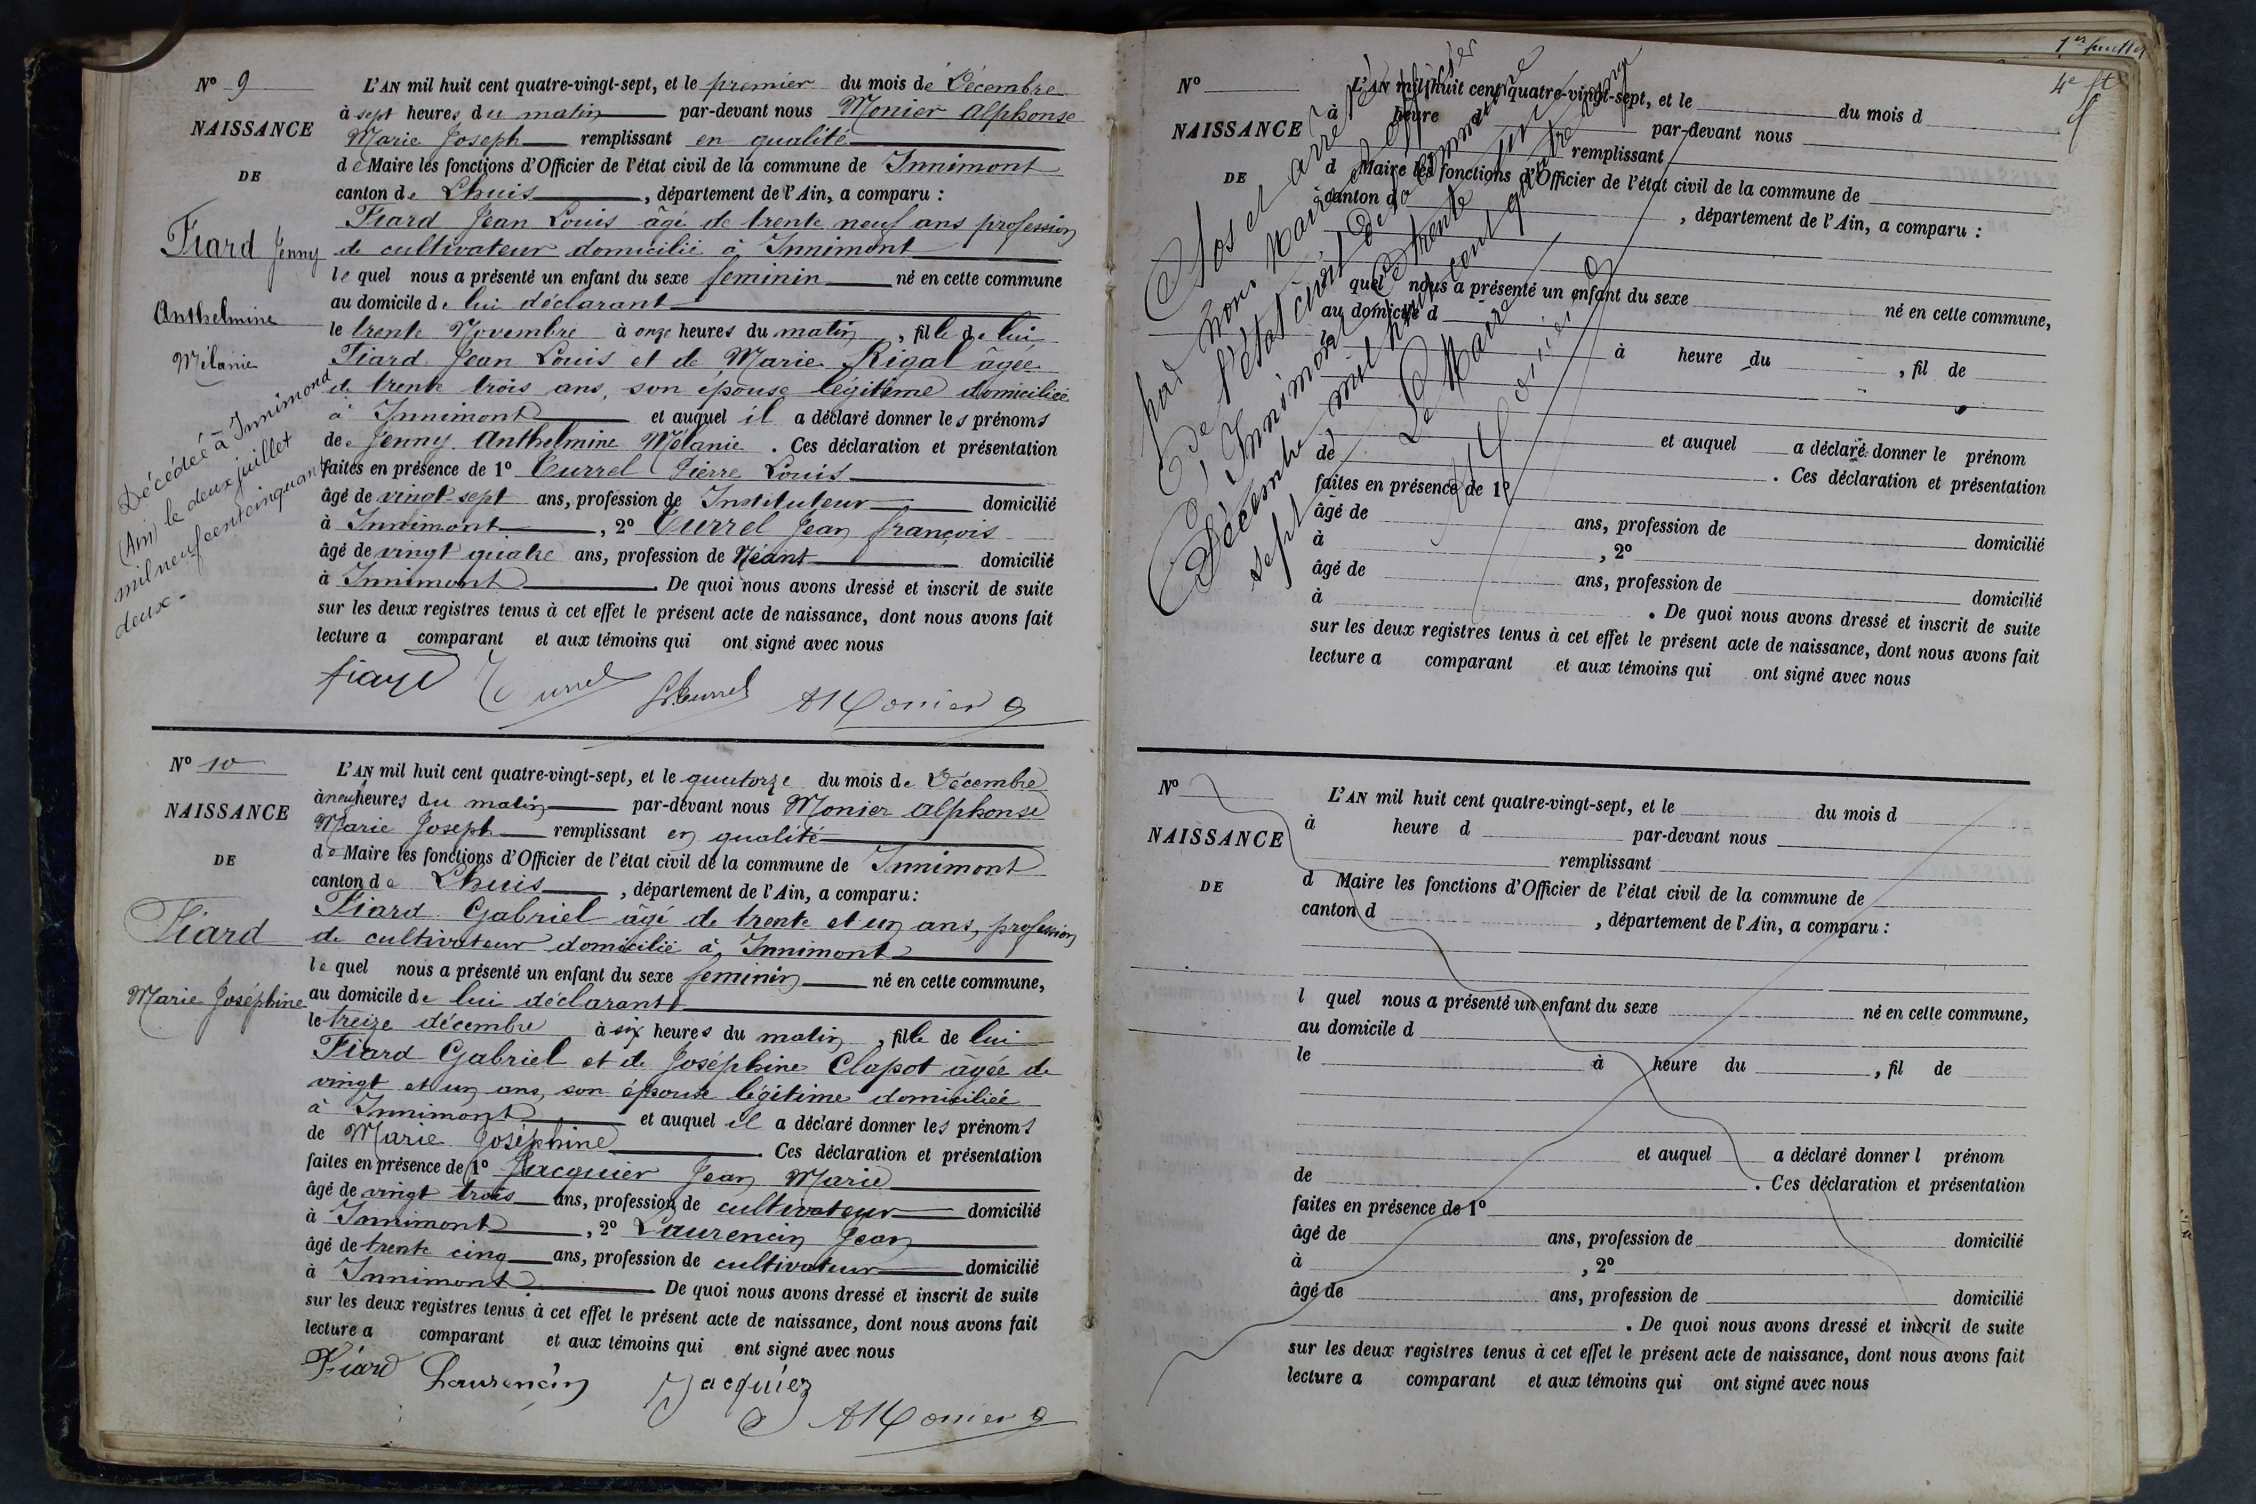 N° 9
NAISSANCE
DE
Fiard Jenny
Anthelmine
Mélanie
Décédée à Innimond
(Ain) le deux juillet
mil neuf cent cinquante
deux.
L'AN mil huit cent quatre-vingt-sept, et le premier du mois de Décembre
à sept heures du matin par-devant nous Monier Alphonse
Marie Joseph remplissant en qualité
de Maire les fonctions d'Officier de l'état civil de la commune de Innimont
canton de Lhuis, département de l'Ain, a comparu :
Fiard Jean Louis âgé de trente neuf ans profession
de cultivateur domicilié à Innimont
lequel nous a présenté un enfant du sexe feminin né en cette commune
au domicile de lui déclarant
le trente Novembre à onze heures du matin, fille de lui
Fiard Jean Louis et de Marie Rigal âgée
de trente trois ans, son épouse légitime domiciliée
à Innimont et auquel il a déclaré donner les prénoms
de Jenny Anthelmine Mélanie. Ces déclaration et présentation
faites en présence de 1° Currel Pierre Louis
âgé de vingt-sept ans, profession de Instituteur domicilié
à Innimont, 2° Currel Jean françois
âgé de vingt quatre ans, profession de Néant domicilié
à Innimont. De quoi nous avons dressé et inscrit de suite
sur les deux registres tenus à cet effet le présent acte de naissance, dont nous avons fait
lecture a comparant et aux témoins qui ont signé avec nous
fiard Currel Currel AMonier
N° 10
NAISSANCE
DE
Fiard
Marie Joséphine
L'AN mil huit cent quatre-vingt-sept, et le quatorze du mois de Décembre
à neuf heures du matin par-devant nous Monier Alphonse
Marie Joseph remplissant en qualité
de Maire les fonctions d'Officier de l'état civil de la commune de Innimont
canton de Lhuis, département de l'Ain, a comparu :
Fiard Gabriel âgé de trente et un ans, profession
de cultivateur domicilié à Innimont
lequel nous a présenté un enfant du sexe feminin né en cette commune,
au domicile de lui déclarant
le treize décembre à six heures du matin, fille de lui
Fiard Gabriel et de Joséphine Clapot âgée de
vingt et un ans, son épouse légitime domiciliée
à Innimont et auquel il a déclaré donner les prénoms
de Marie Joséphine. Ces déclaration et présentation
faites en présence de 1° Jacquier Jean Marie
âgé de vingt trois ans, profession de cultivateur domicilié
à Innimont, 2° Laurencin Jean
âgé de trente cinq ans, profession de cultivateur domicilié
à Innimont. De quoi nous avons dressé et inscrit de suite
sur les deux registres tenus à cet effet le présent acte de naissance, dont nous avons fait
lecture a comparant et aux témoins qui ont signé avec nous
Fiard Laurencin Jacquier AMonier
4e
N°
NAISSANCE
DE
L'AN mil huit cent quatre-vingt-sept, et le du mois d
à heure d par-devant nous
remplissant
d Maire les fonctions d'Officier de l'état civil de la commune de
canton d, département de l'Ain, a comparu :
quel nous a présenté un enfant du sexe né en cette commune,
au domicile d
à heure du, fil de
et auquel a déclaré donner le prénom
de. Ces déclaration et présentation
faites en présence de 1°
âgé de ans, profession de domicilié
à, 2°
âgé de ans, profession de domicilié
à. De quoi nous avons dressé et inscrit de suite
sur les deux registres tenus à cet effet le présent acte de naissance, dont nous avons fait
lecture a comparant et aux témoins qui ont signé avec nous
Clos et arrêté
par nous Maire et officier
de l'état civil de la commune
d'Innimont le trente un
Décembre mil huit cent quatre vingt
sept
Le Maire
AMonier
N°
NAISSANCE
DE
L'AN mil huit cent quatre-vingt-sept, et le du mois d
à heure d par-devant nous
remplissant
d Maire les fonctions d'Officier de l'état civil de la commune de
canton d, département de l'Ain, a comparu :
l quel nous a présenté un enfant du sexe né en cette commune,
au domicile d
le à heure du, fil de
et auquel a déclaré donner l prénom
de. Ces déclaration et présentation
faites en présence de 1°
âgé de ans, profession de domicilié
à, 2°
âgé de ans, profession de domicilié
. De quoi nous avons dressé et inscrit de suite
sur les deux registres tenus à cet effet le présent acte de naissance, dont nous avons fait
lecture a comparant et aux témoins qui ont signé avec nous